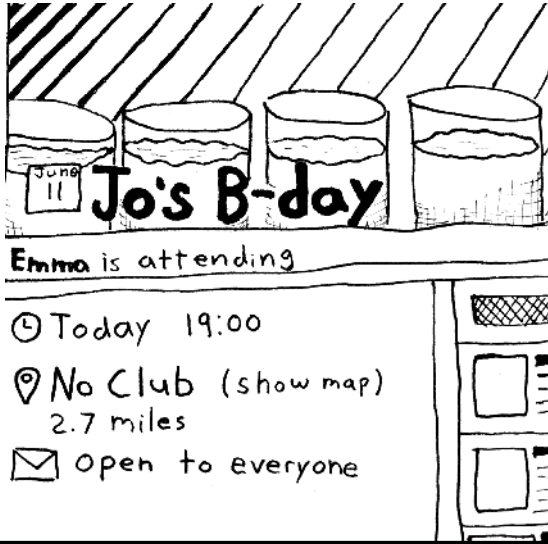 June
11
Jo's B-day
Emma is attending
Today 19:00
No Club (show map)
2.7 miles
open to everyone